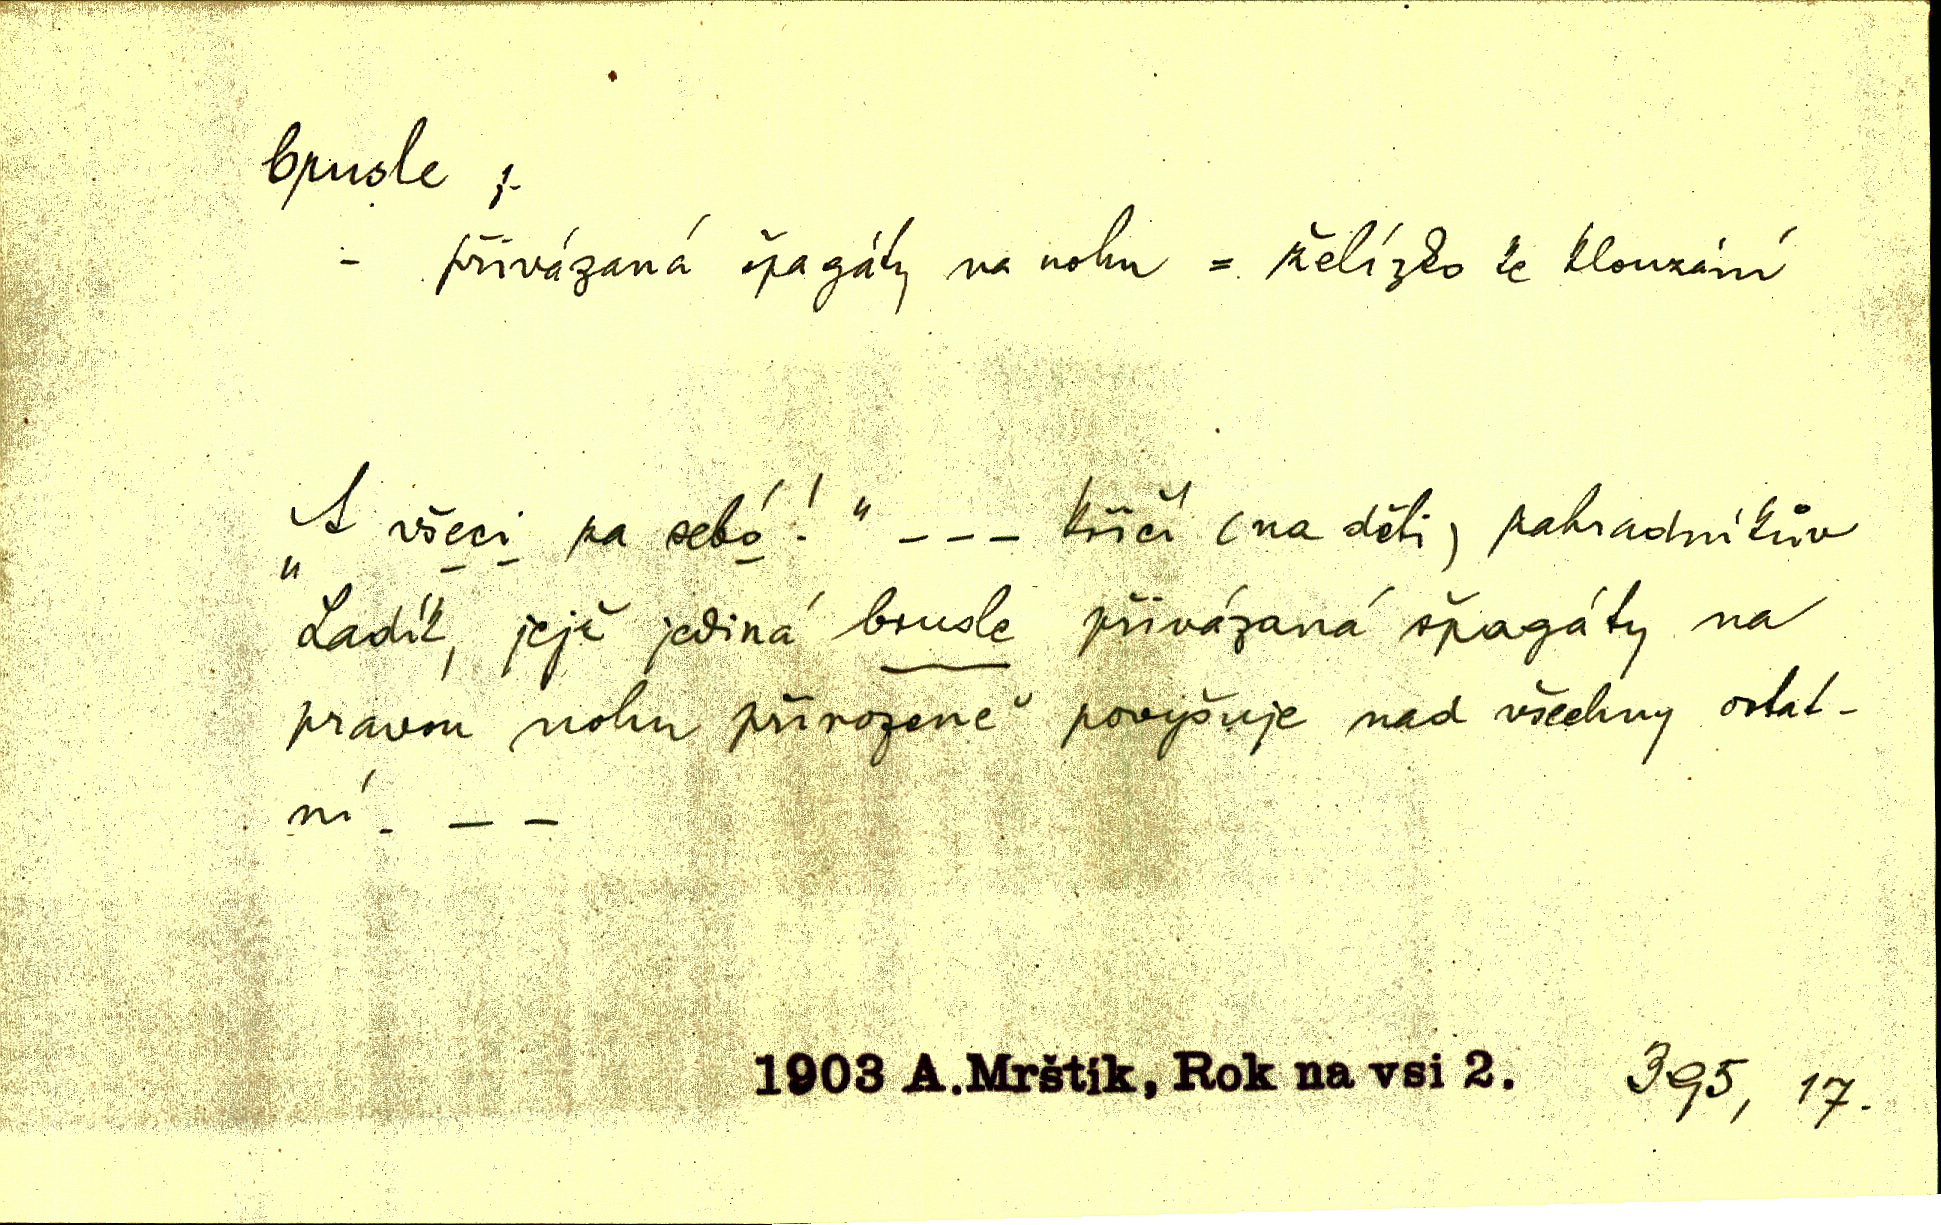 brusle, f.
- přivázaná špagáty na nohu = želízko ke klouzání
„A všeci za sebó!“ --- křičí (na děti) zahradníkův
Ladík, jejž jediná brusle přivázaná špagáty na
pravou nohu přirozeně povyšuje nad všechny ostat-
ní. --
1903 A.Mrštík, Rok na vsi 2. 395, 17.